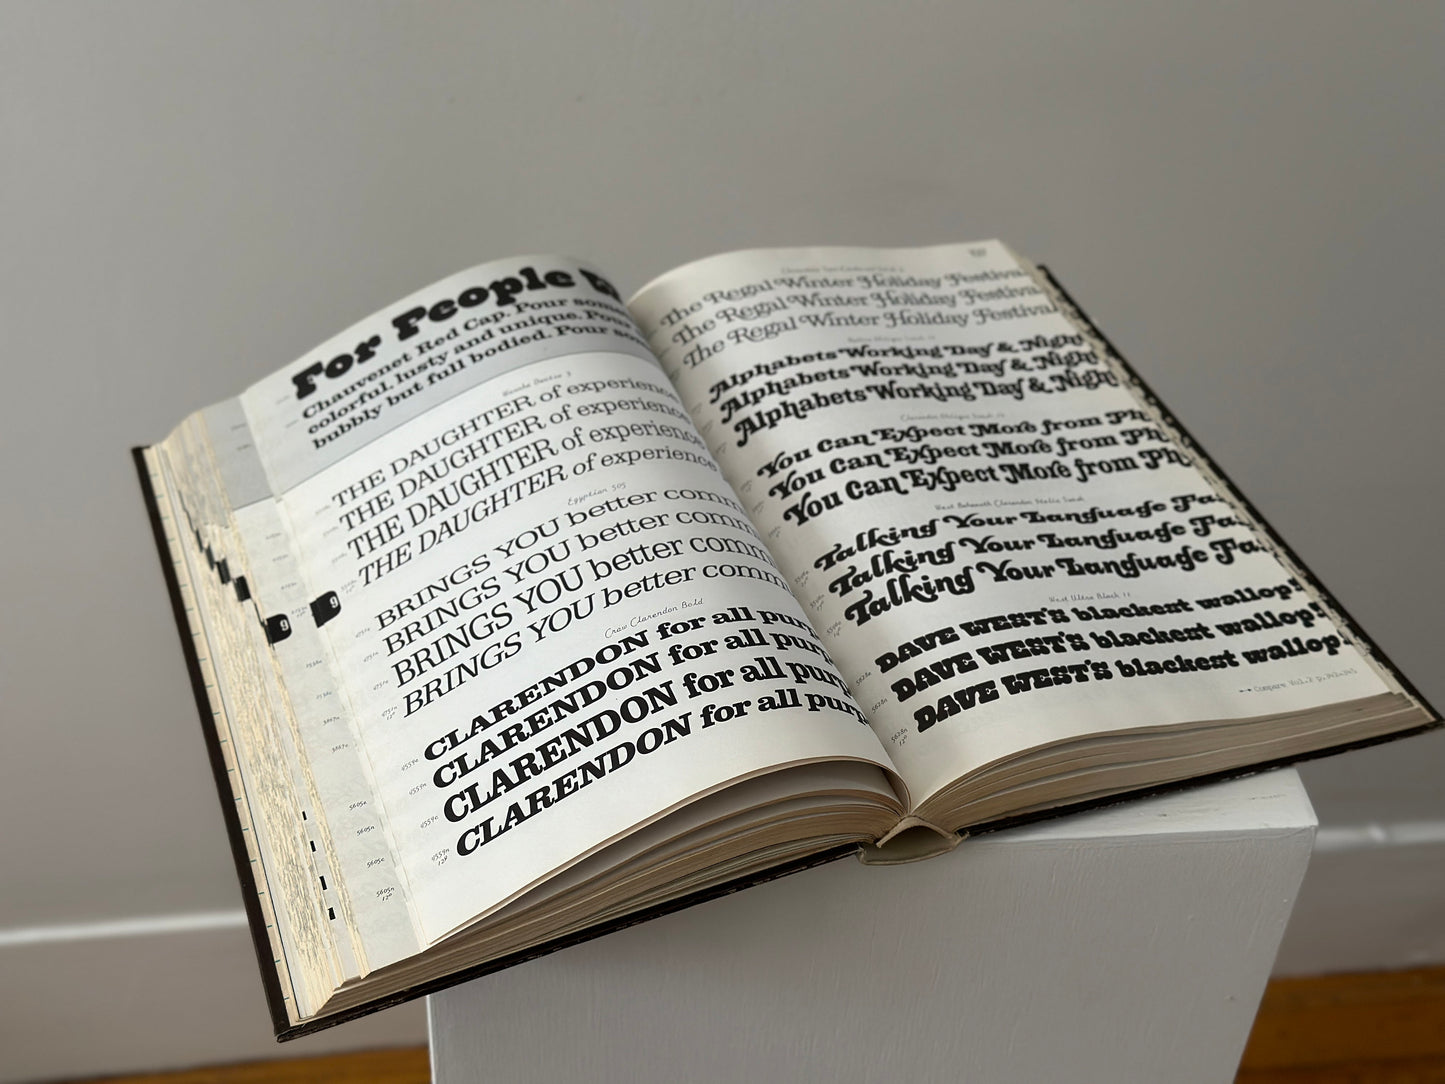 For People
Chauvenet Red Cap. Pour some
colorful, lusty and unique. Pour
bubbly but full bodied. Pour som
THE DAUGHTER of experience
THE DAUGHTER of experience
THE DAUGHTER of experience
THE DAUGHTER of experience
Egyptian 505
BRINGS YOU better comm
BRINGS YOU better comm
BRINGS YOU better comm
BRINGS YOU better comm
Craw Clarendon Bold
CLARENDON for all purp
CLARENDON for all purp
CLARENDON for all purp
CLARENDON for all purp
9
9
The Regal Winter Holiday Festiva
The Regal Winter Holiday Festiva
The Regal Winter Holiday Festiva
Alphabets Working Day & Night
Alphabets Working Day & Night
Alphabets Working Day & Night
You Can Expect More from Ph
You Can Expect More from Ph
You Can Expect More from Ph
West Behemoth Clarendon Italic Swash
Talking Your Language Fa
Talking Your Language Fa
Talking Your Language Fa
West Ultra Black 11
DAVE WEST'S blackest wallop!
DAVE WEST'S blackest wallop!
DAVE WEST'S blackest wallop!
Compare Vol. 2